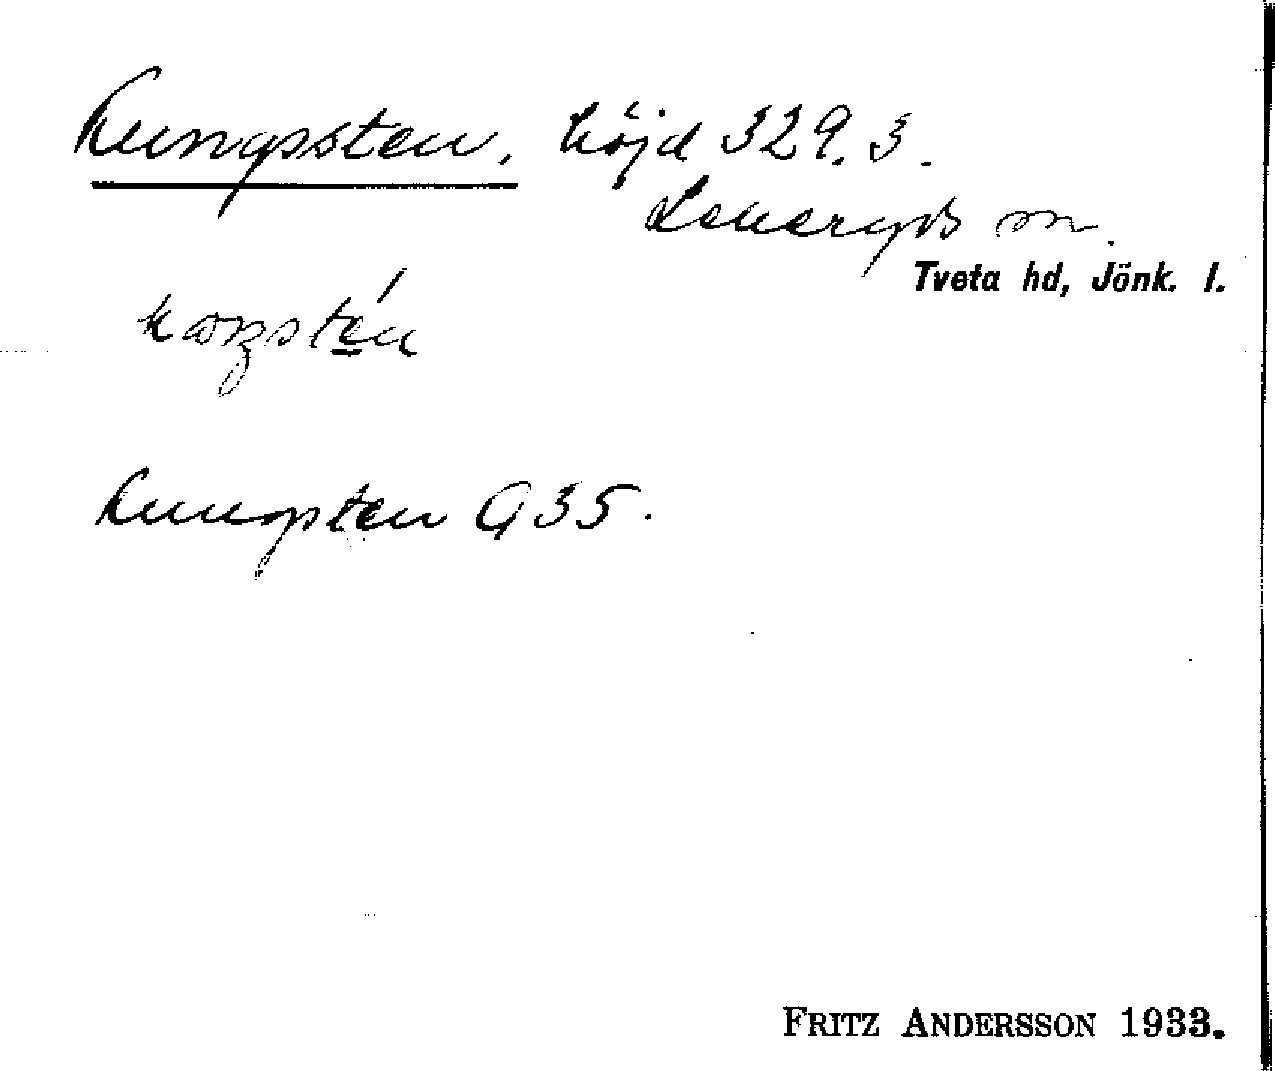 Kungssten. höjd 329.3.
Lekeryds sn.
Tveta hd, Jönk. l.
Kungsten G35.
FRITZ ANDERSSON 1933.